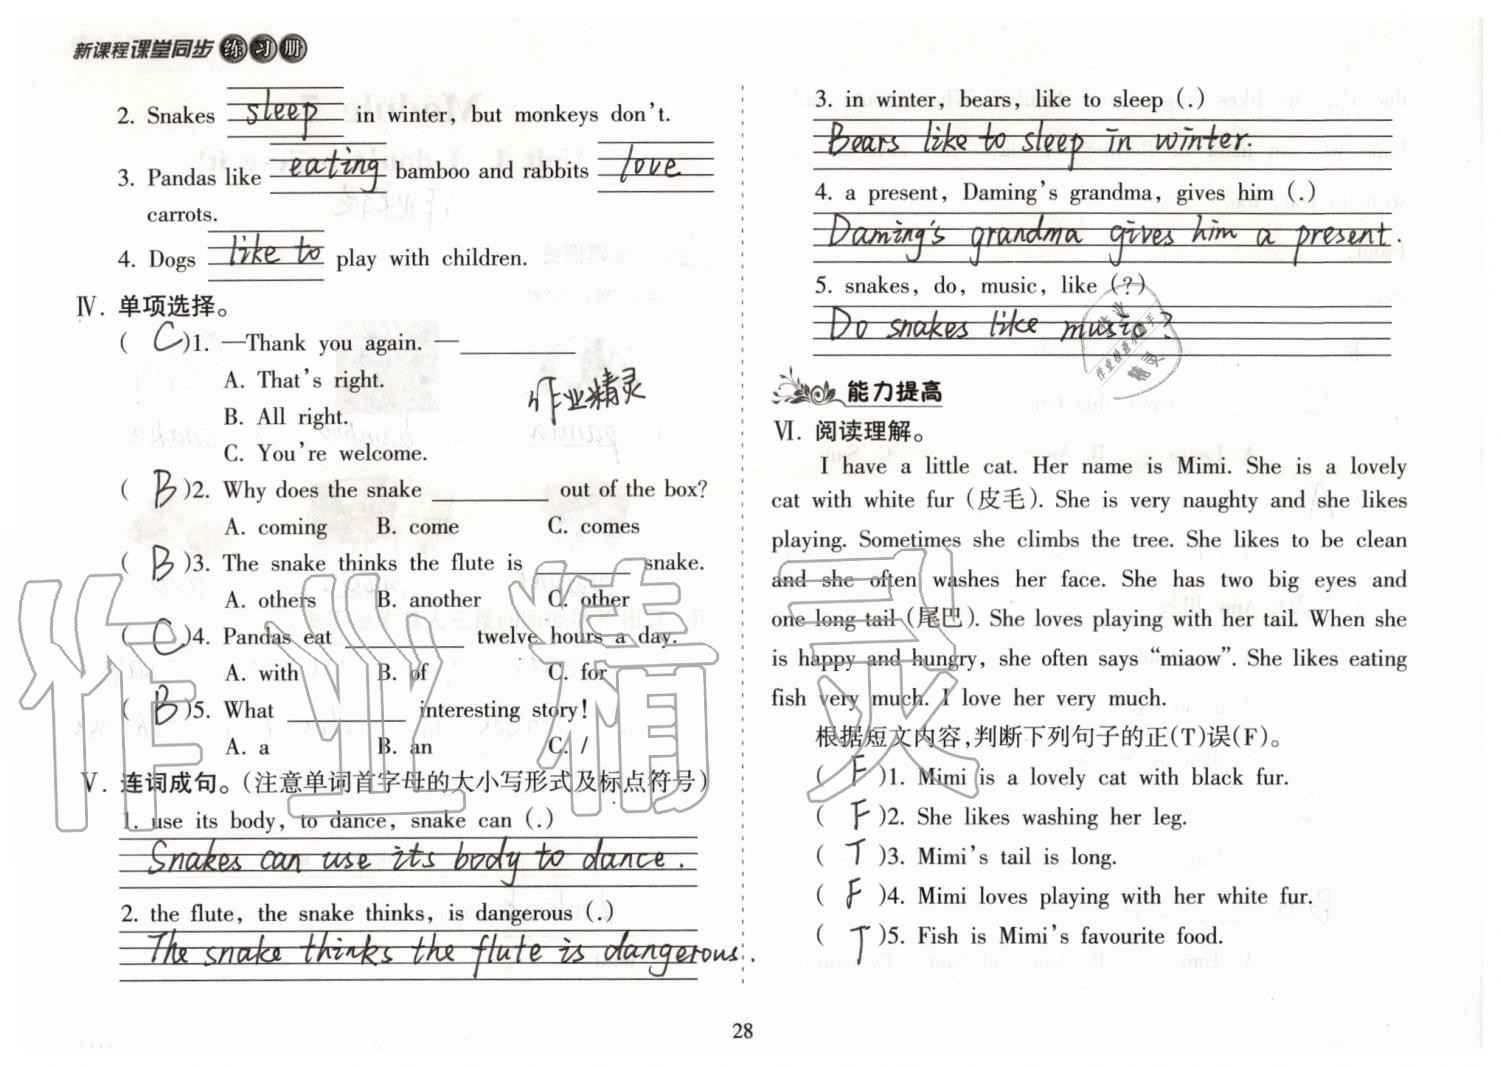 新课程课堂同步练习册
2. Snakes sleep in winter, but monkeys don't.
3. Pandas like eating bamboo and rabbits love
carrots.
4. Dogs like to play with children.
Ⅳ. 单项选择。
( C )1. —Thank you again. —__________
A. That's right.
B. All right.
C. You're welcome.
作业精灵
( B )2. Why does the snake __________ out of the box?
A. coming B. come C. comes
( B )3. The snake thinks the flute is __________ snake.
A. others B. another C. other
( C )4. Pandas eat __________ twelve hours a day.
A. with B. of C. for
( B )5. What __________ interesting story!
A. a B. an C. /
Ⅴ. 连词成句。(注意单词首字母的大小写形式及标点符号)
1. use its body, to dance, snake can (.)
Snakes can use its body to dance.
2. the flute, the snake thinks, is dangerous (.)
The snake thinks the flute is dangerous.
3. in winter, bears, like to sleep (.)
Bears like to sleep in winter.
4. a present, Daming's grandma, gives him (.)
Daming's grandma gives him a present.
5. snakes, do, music, like (?)
Do snakes like music?
能力提高
Ⅵ. 阅读理解。
I have a little cat. Her name is Mimi. She is a lovely
cat with white fur (皮毛). She is very naughty and she likes
playing. Sometimes she climbs the tree. She likes to be clean
and she often washes her face. She has two big eyes and
one long tail (尾巴). She loves playing with her tail. When she
is happy and hungry, she often says “miaow”. She likes eating
fish very much. I love her very much.
根据短文内容,判断下列句子的正(T)误(F)。
( F )1. Mimi is a lovely cat with black fur.
( F )2. She likes washing her leg.
( T )3. Mimi's tail is long.
( F )4. Mimi loves playing with her white fur.
( T )5. Fish is Mimi's favourite food.
作业精灵
28